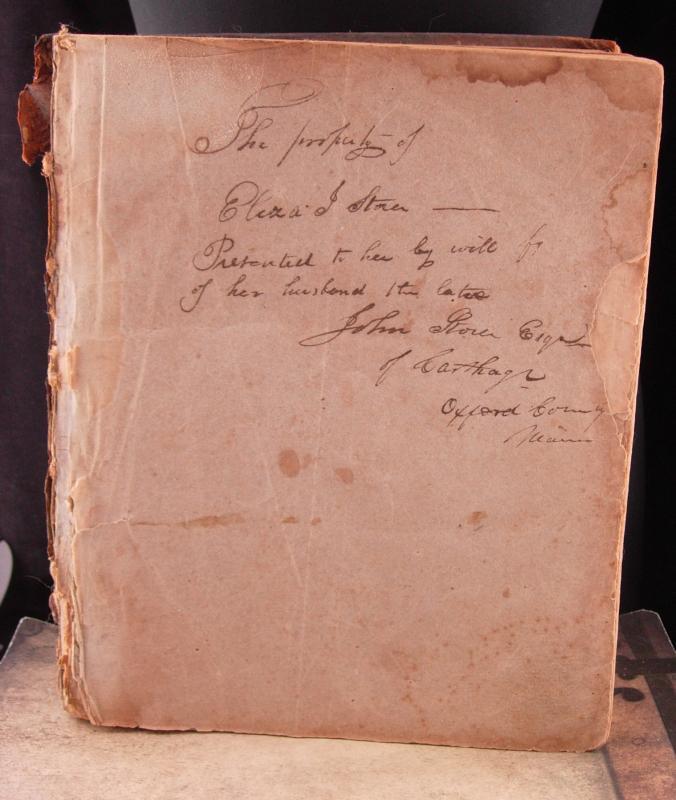 The property of
Eliza J Storer —
Presented to her by will
of her husband the late
John Storer Esqr
of Carthage
Oxford County
Maine